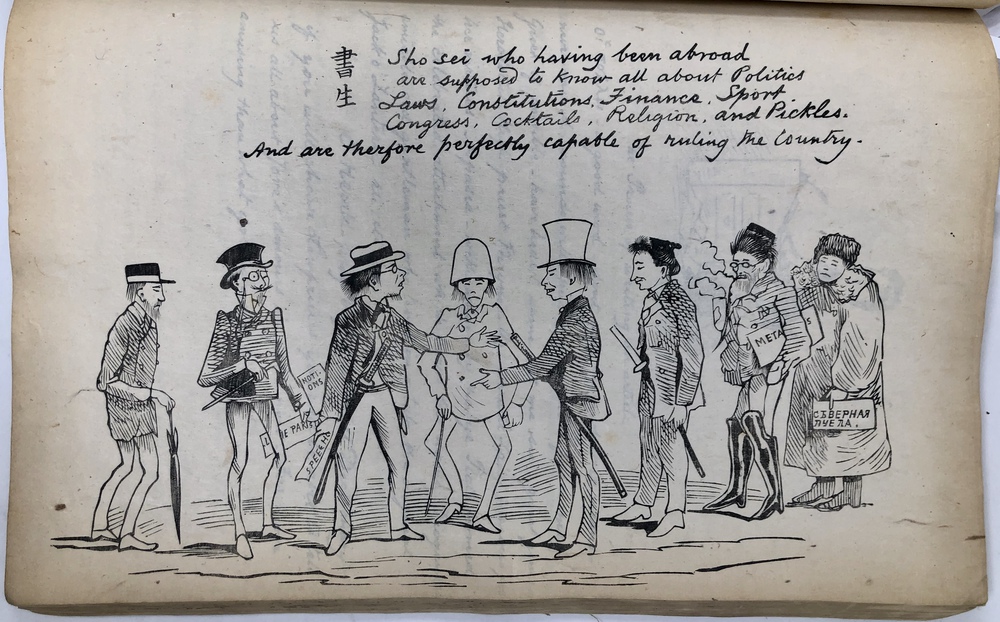 書生
Sho sei who having been abroad
are supposed to know all about Politics
Laws, Constitutions, Finance, Sport
Congress, Cocktails, Religion, and Pickles.
And are therfore perfectly capable of ruling the Country.
MOTI-
ONS
DE PARIS
SPEECH
META
S
СѢВЕРНАЯ
ПЧЕЛА.